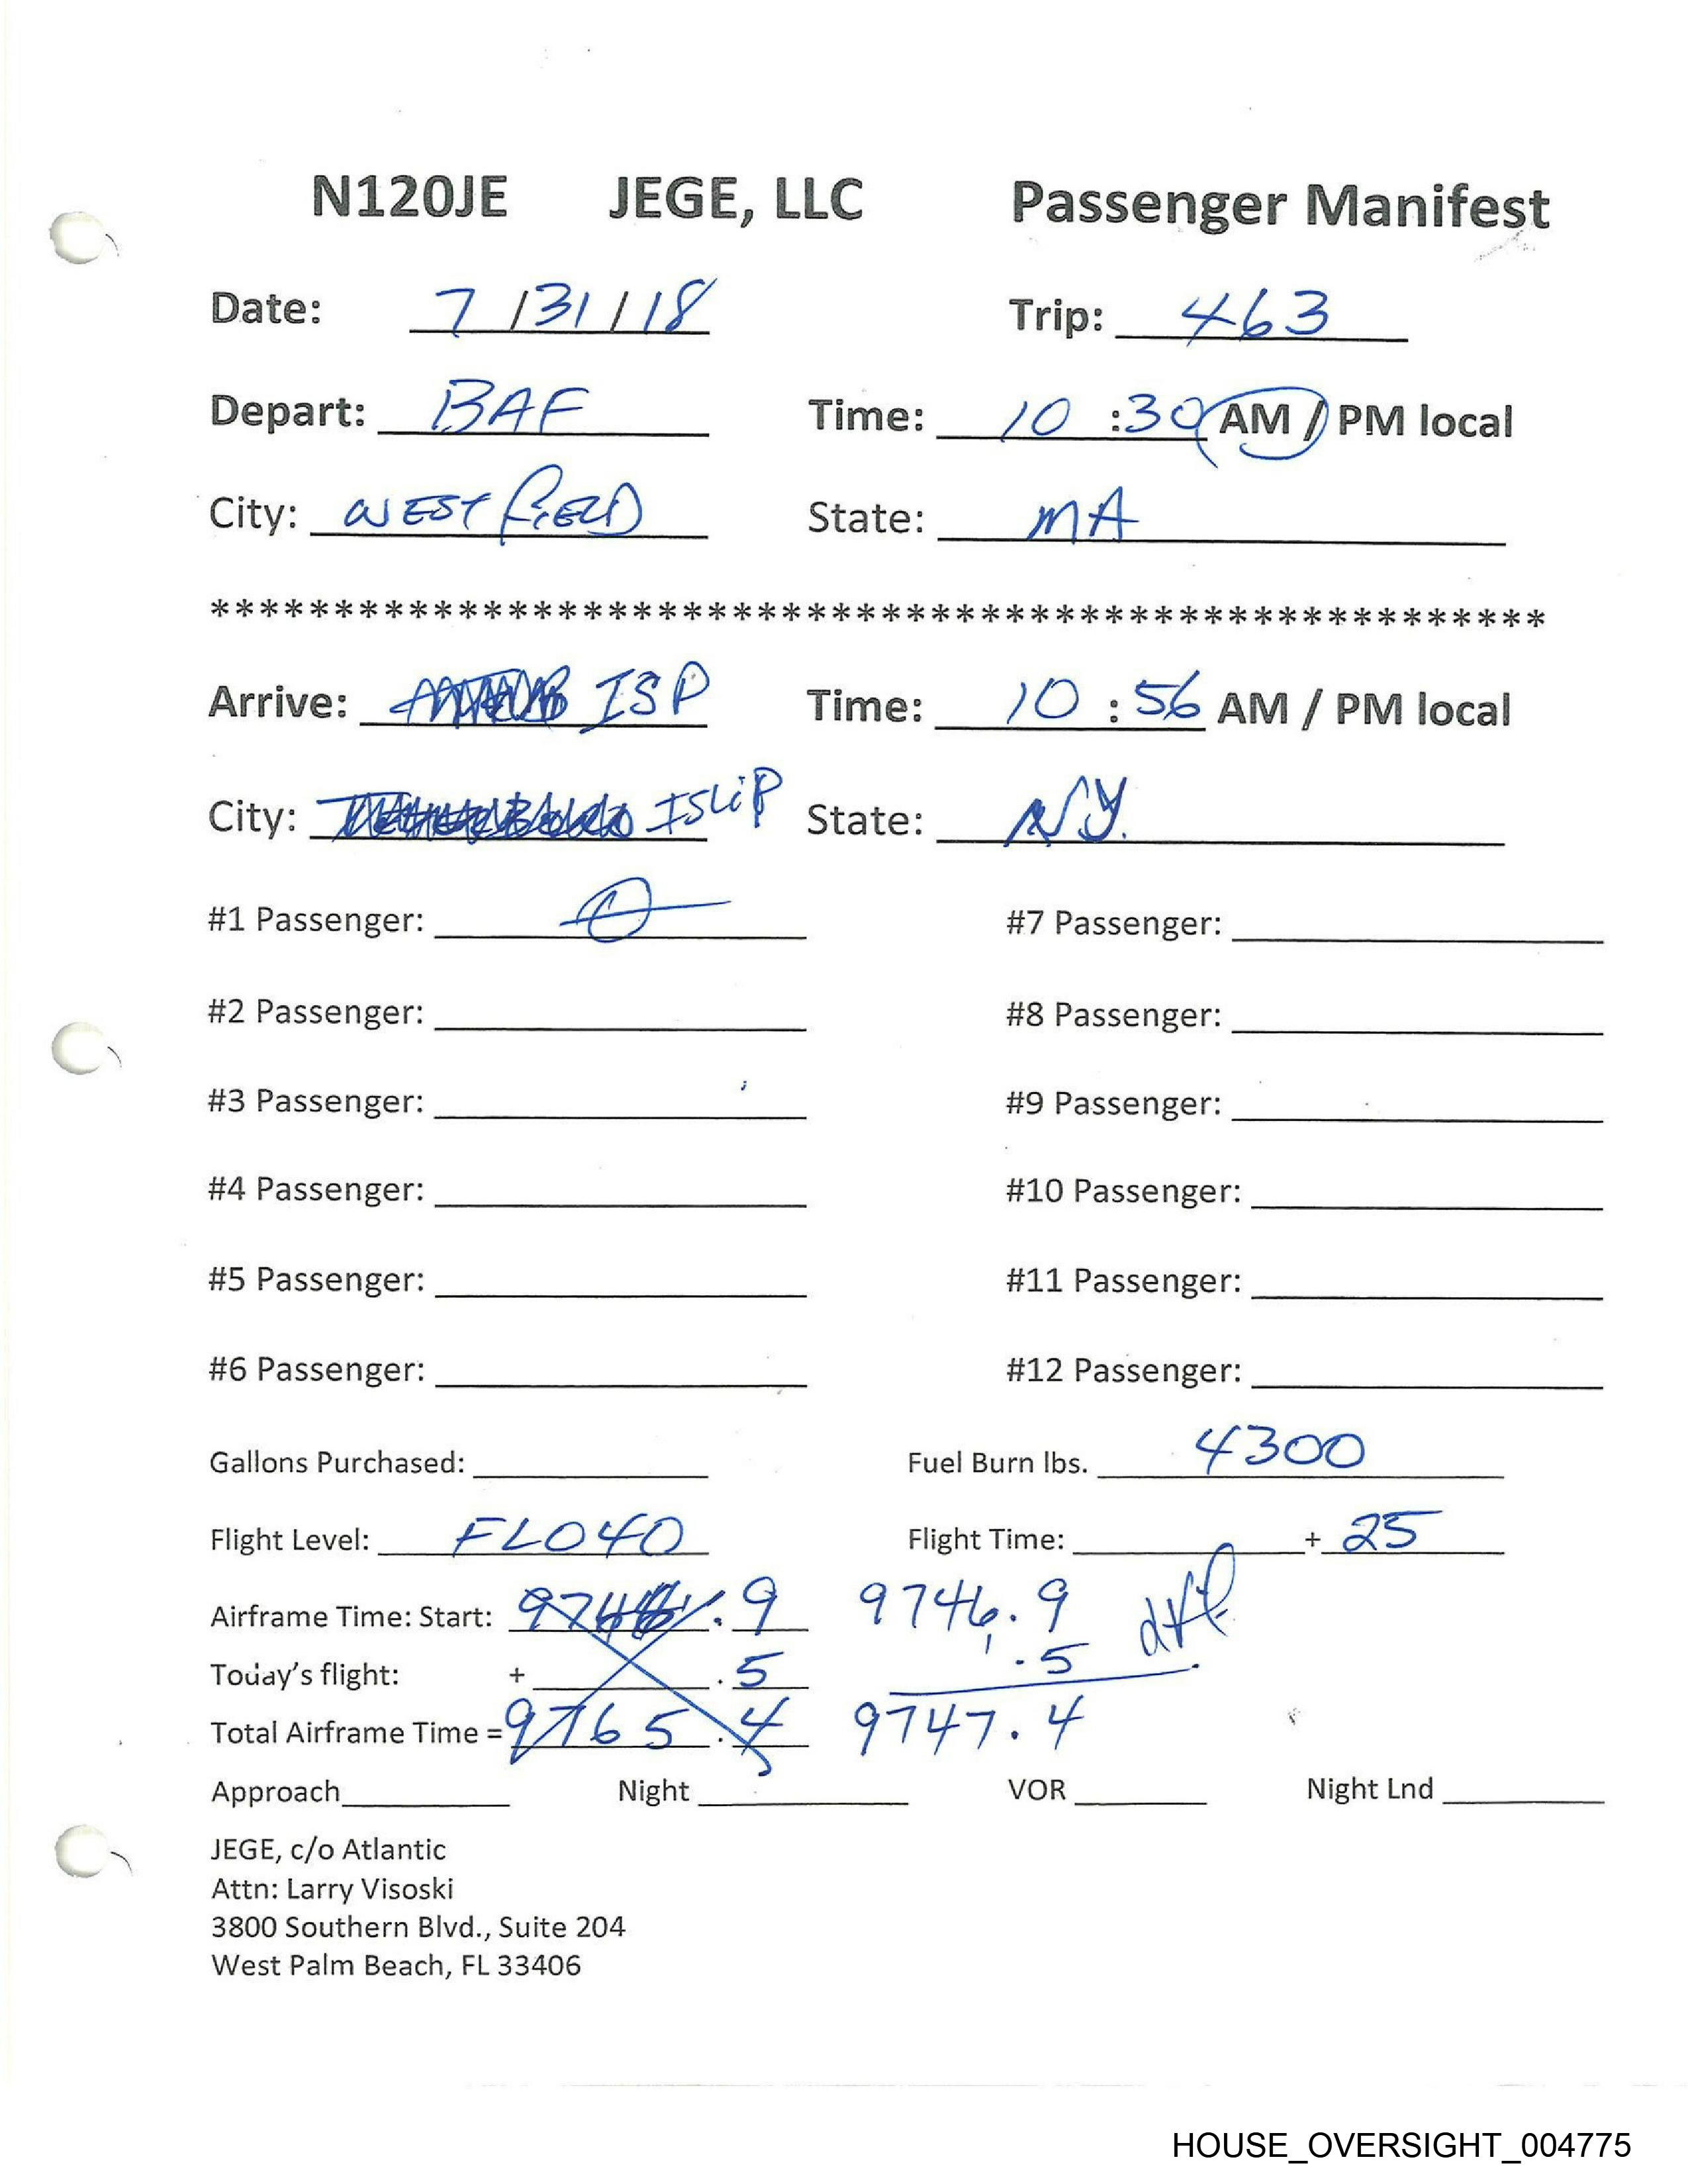 N120JE JEGE, LLC Passenger Manifest
Date: 7 / 31 / 18 Trip: 463
Depart: BAF Time: 10 : 30 AM / PM local
City: WESTFIELD State: MA
******************************************************
Arrive: ISP Time: 10 : 56 AM / PM local
City: ISLIP State: NY.
#1 Passenger: #7 Passenger:
#2 Passenger: #8 Passenger:
#3 Passenger: #9 Passenger:
#4 Passenger: #10 Passenger:
#5 Passenger: #11 Passenger:
#6 Passenger: #12 Passenger:
Gallons Purchased: Fuel Burn lbs. 4300
Flight Level: FL040 Flight Time: + 25
Airframe Time: Start: .9 9746.9
Today's flight: + .5 .5
Total Airframe Time = 9765.4 9747.4
Approach Night VOR Night Lnd
JEGE, c/o Atlantic
Attn: Larry Visoski
3800 Southern Blvd., Suite 204
West Palm Beach, FL 33406
HOUSE_OVERSIGHT_004775